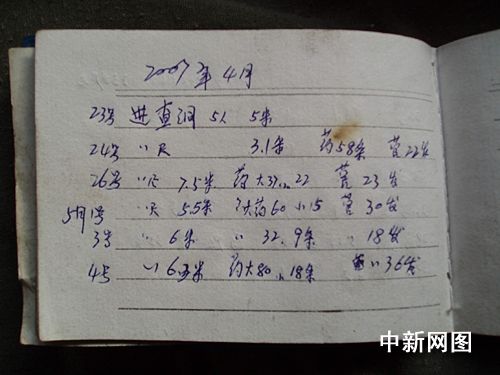 2007年4月
23号 进查洞 5人 5米
24号 〃尺 3.1米 药58条 管22发
26号 〃尺 7.5米 药大37小22 管23发
5月1号 〃尺 5.5米 药60小15 管30发
3号 〃 6米 〃 32.9米 〃 18发
4号 〃 6米 药大80小18条 〃36发
中新网图